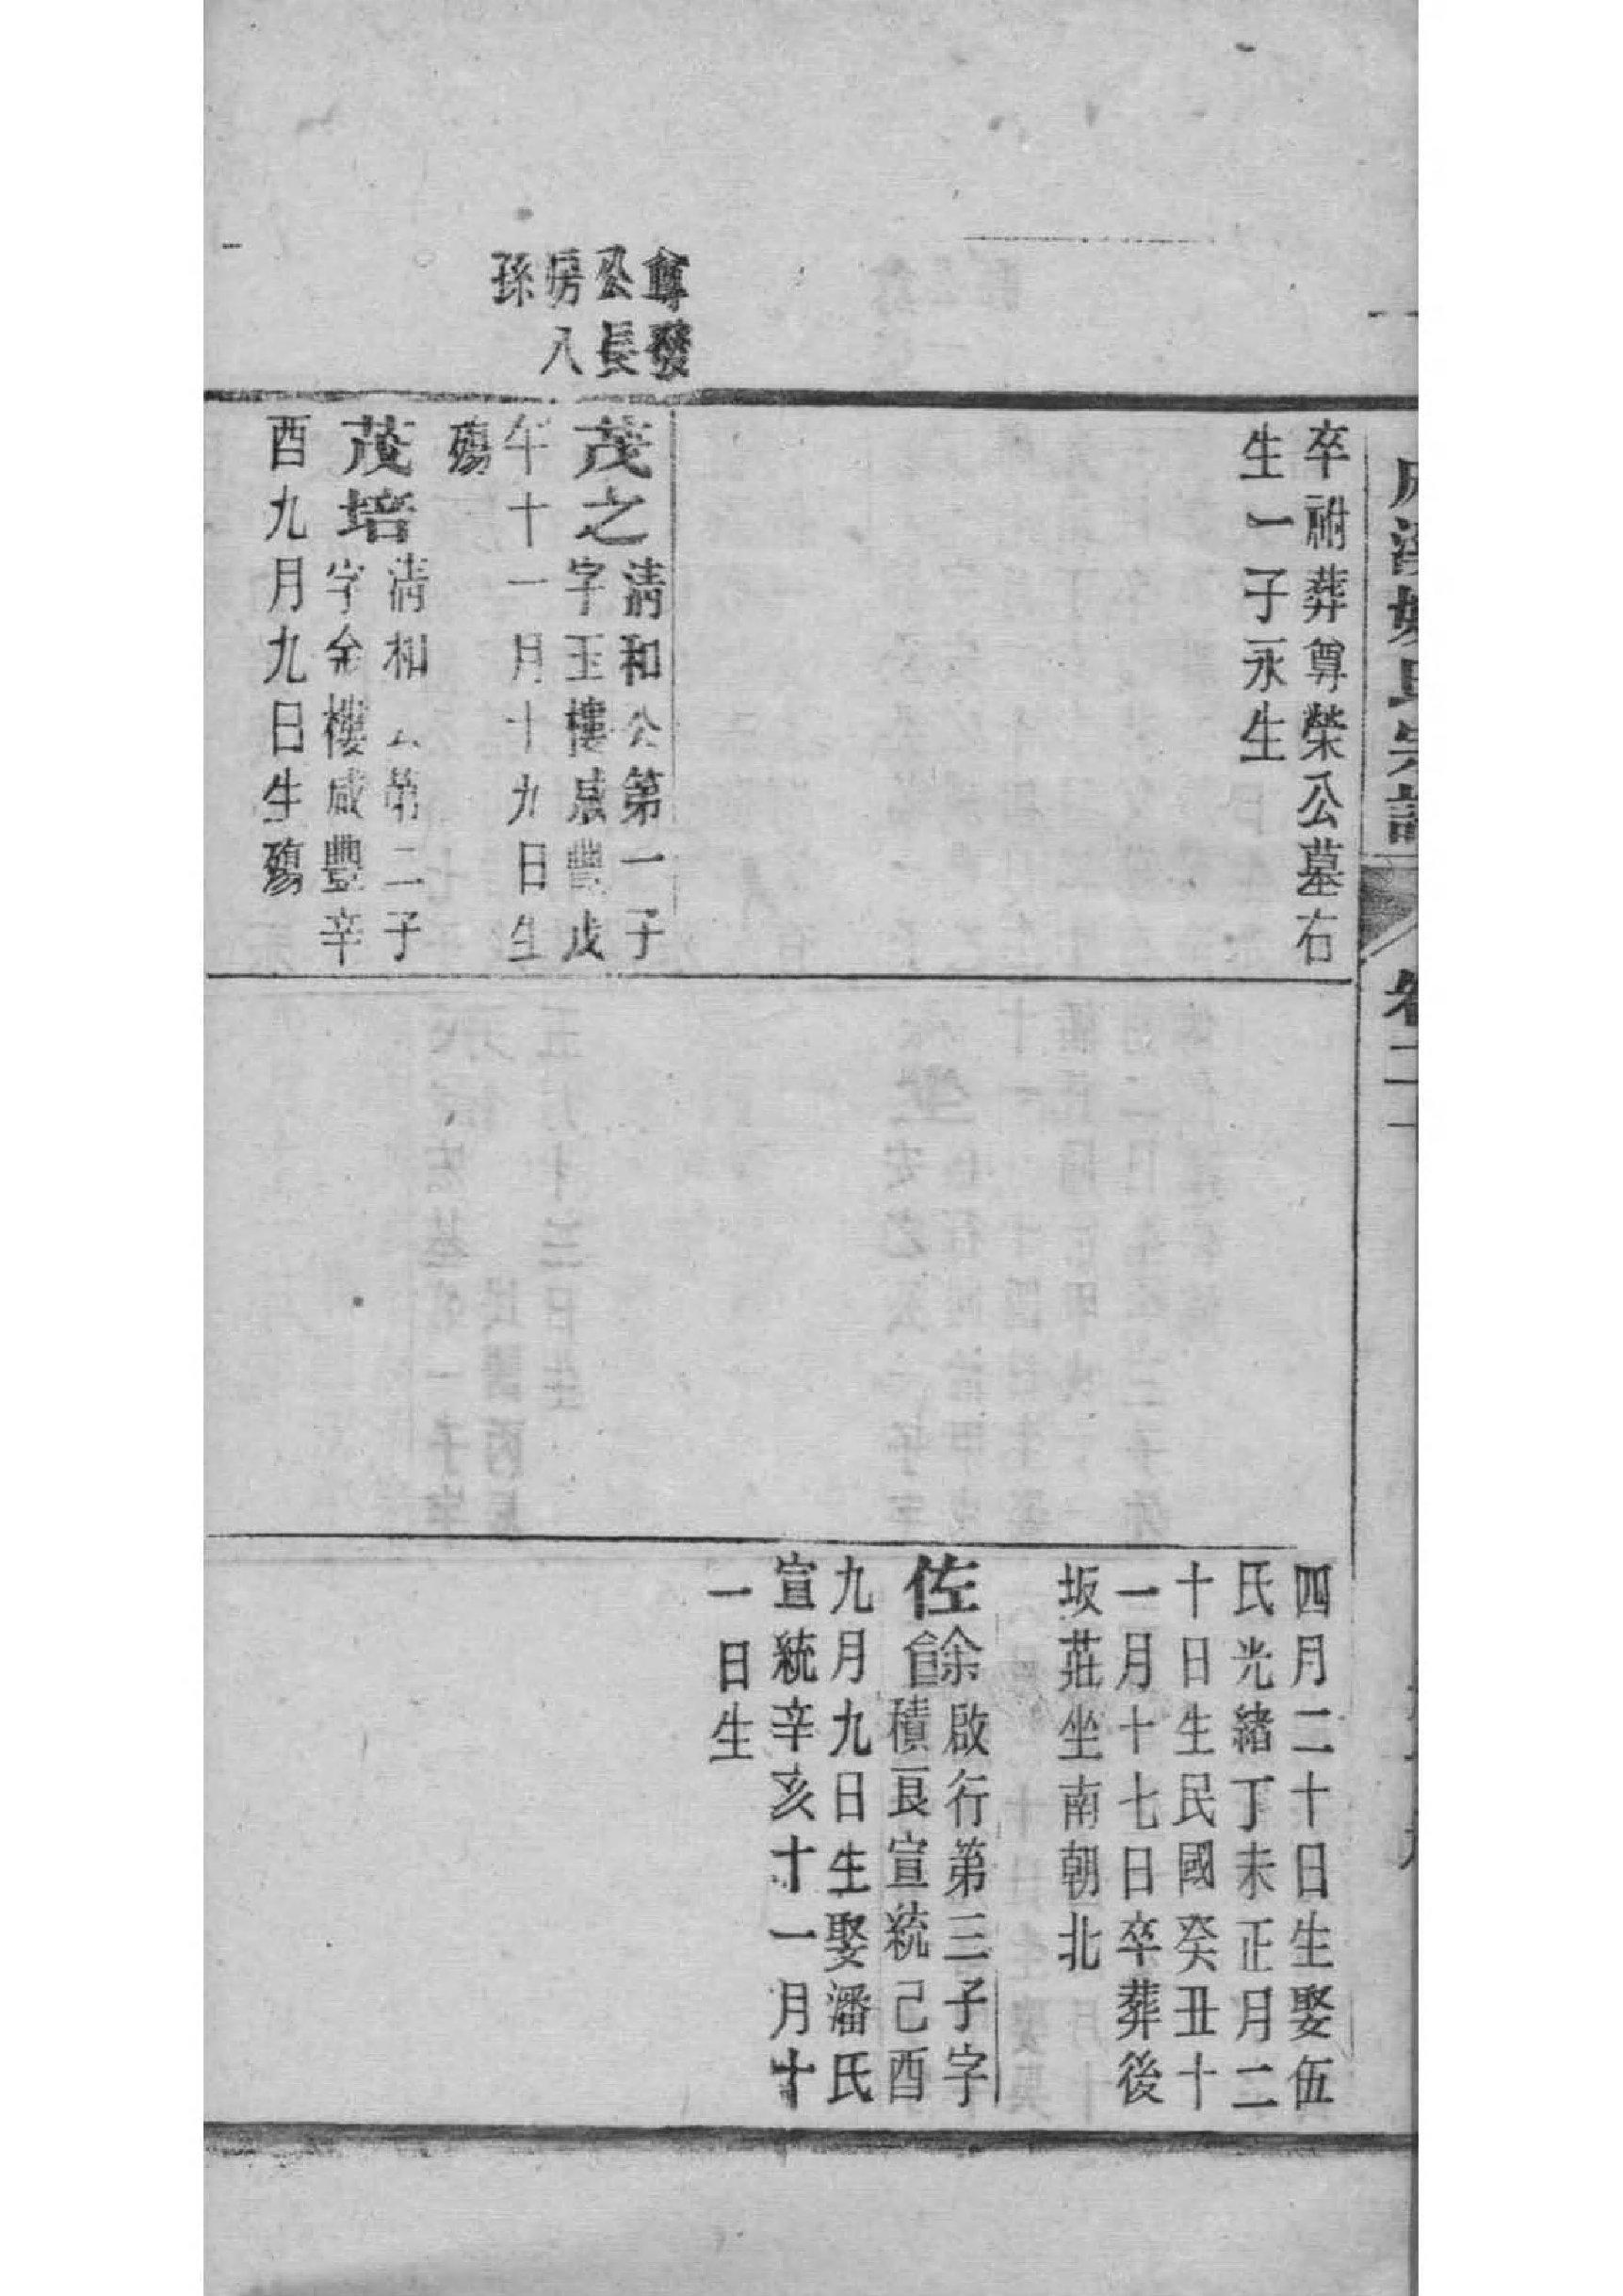 卒祔葬尊榮公墓右
生一子永生
尊發
公長
房八
孫
茂之
清和公第一子
字玉樓咸豐戊
午十一月十九日生
殤
茂培
清和公第二子
字金樓咸豐辛
酉九月九日生殤
四月二十日生娶伍
氏光緒丁未正月二
十日生民國癸丑十
一月十七日卒葬後
坂莊坐南朝北
佐
餘啟行第三子字
積艮宣統己酉
九月九日生娶潘氏
宣統辛亥十一月十
一日生